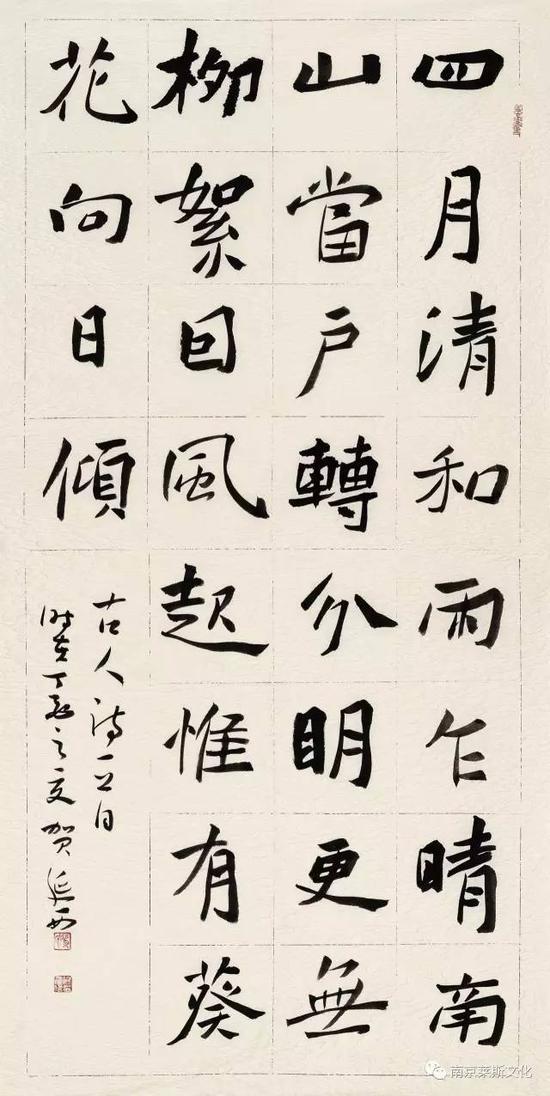 四月清和雨乍晴南
山當户轉分明更無
柳絮回風起惟有葵
花向日傾
古人诗一首
时在丁亥之夏贺
南京莱斯文化